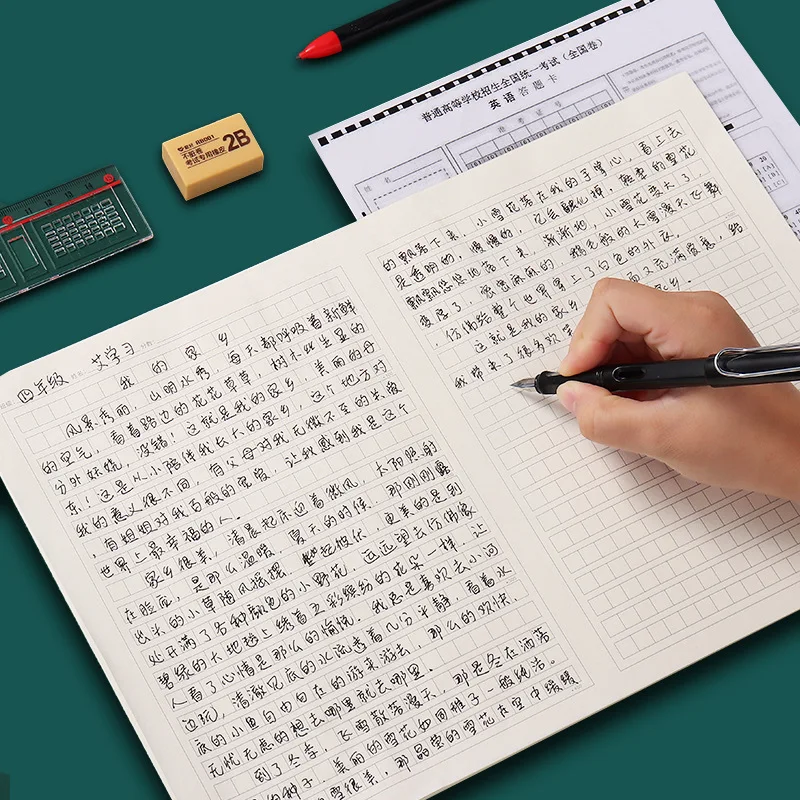 普通高等学校招生全国统一考试（全国卷）
英语答题卡
准考证号
姓名
BB001
2B
不脏卷
考试专用橡皮
11 12 13 14
四年级 艾学习
我的家乡
风景秀丽，山明水秀，每天都呼吸着新鲜
的空气，看着路边的花花草草，树木比生里的
分外妖娆，没错！这就是我的家乡，美丽的丹
东！这是从小陪伴我长大的家乡，这个地方对
我的意义很不同，有父母对我无微不至的关爱
，有姐姐对我百般的宽容，让我感到我是这个
世界上最幸福的人。
家乡很美，清晨起床迎着微风，太阳照射
在脸庞，是那么温暖，夏天的时候，那刚刚露
出头的小草随风摇摆，此起彼伏，更美的是别
处开满了各种颜色的小野花，远远望去仿佛像
碧绿的大地毯上绣着五彩缤纷的花朵一样，让
人看了心情是那么的愉悦，我总是喜欢去小河
边玩，清澈见底的水流透着几分平静，看着水
底的小鱼自由自在的游来游去，那么的欢快，
无忧无虑的想去哪里就去哪里。
到了冬季，飞雪散落漫天，那是冬在洒落
的种子，美丽的雪花如同推子一般纯洁。
雪很美，那晶莹的雪花在空中暖暖
的飘落下来，小雪花落在我的手掌心，看上去
是透明的，慢慢的，它会融化掉，轻柔的雪花
飘飘悠悠地落下来，渐渐地，小雪花变大了，
变厚了，密密麻麻的，鹅毛般的大雪漫天飞舞
，仿佛给整个世界穿上了白色的外衣。
这就是我的家乡
而又充满爱意，给
我带来了很多欢
家乡。